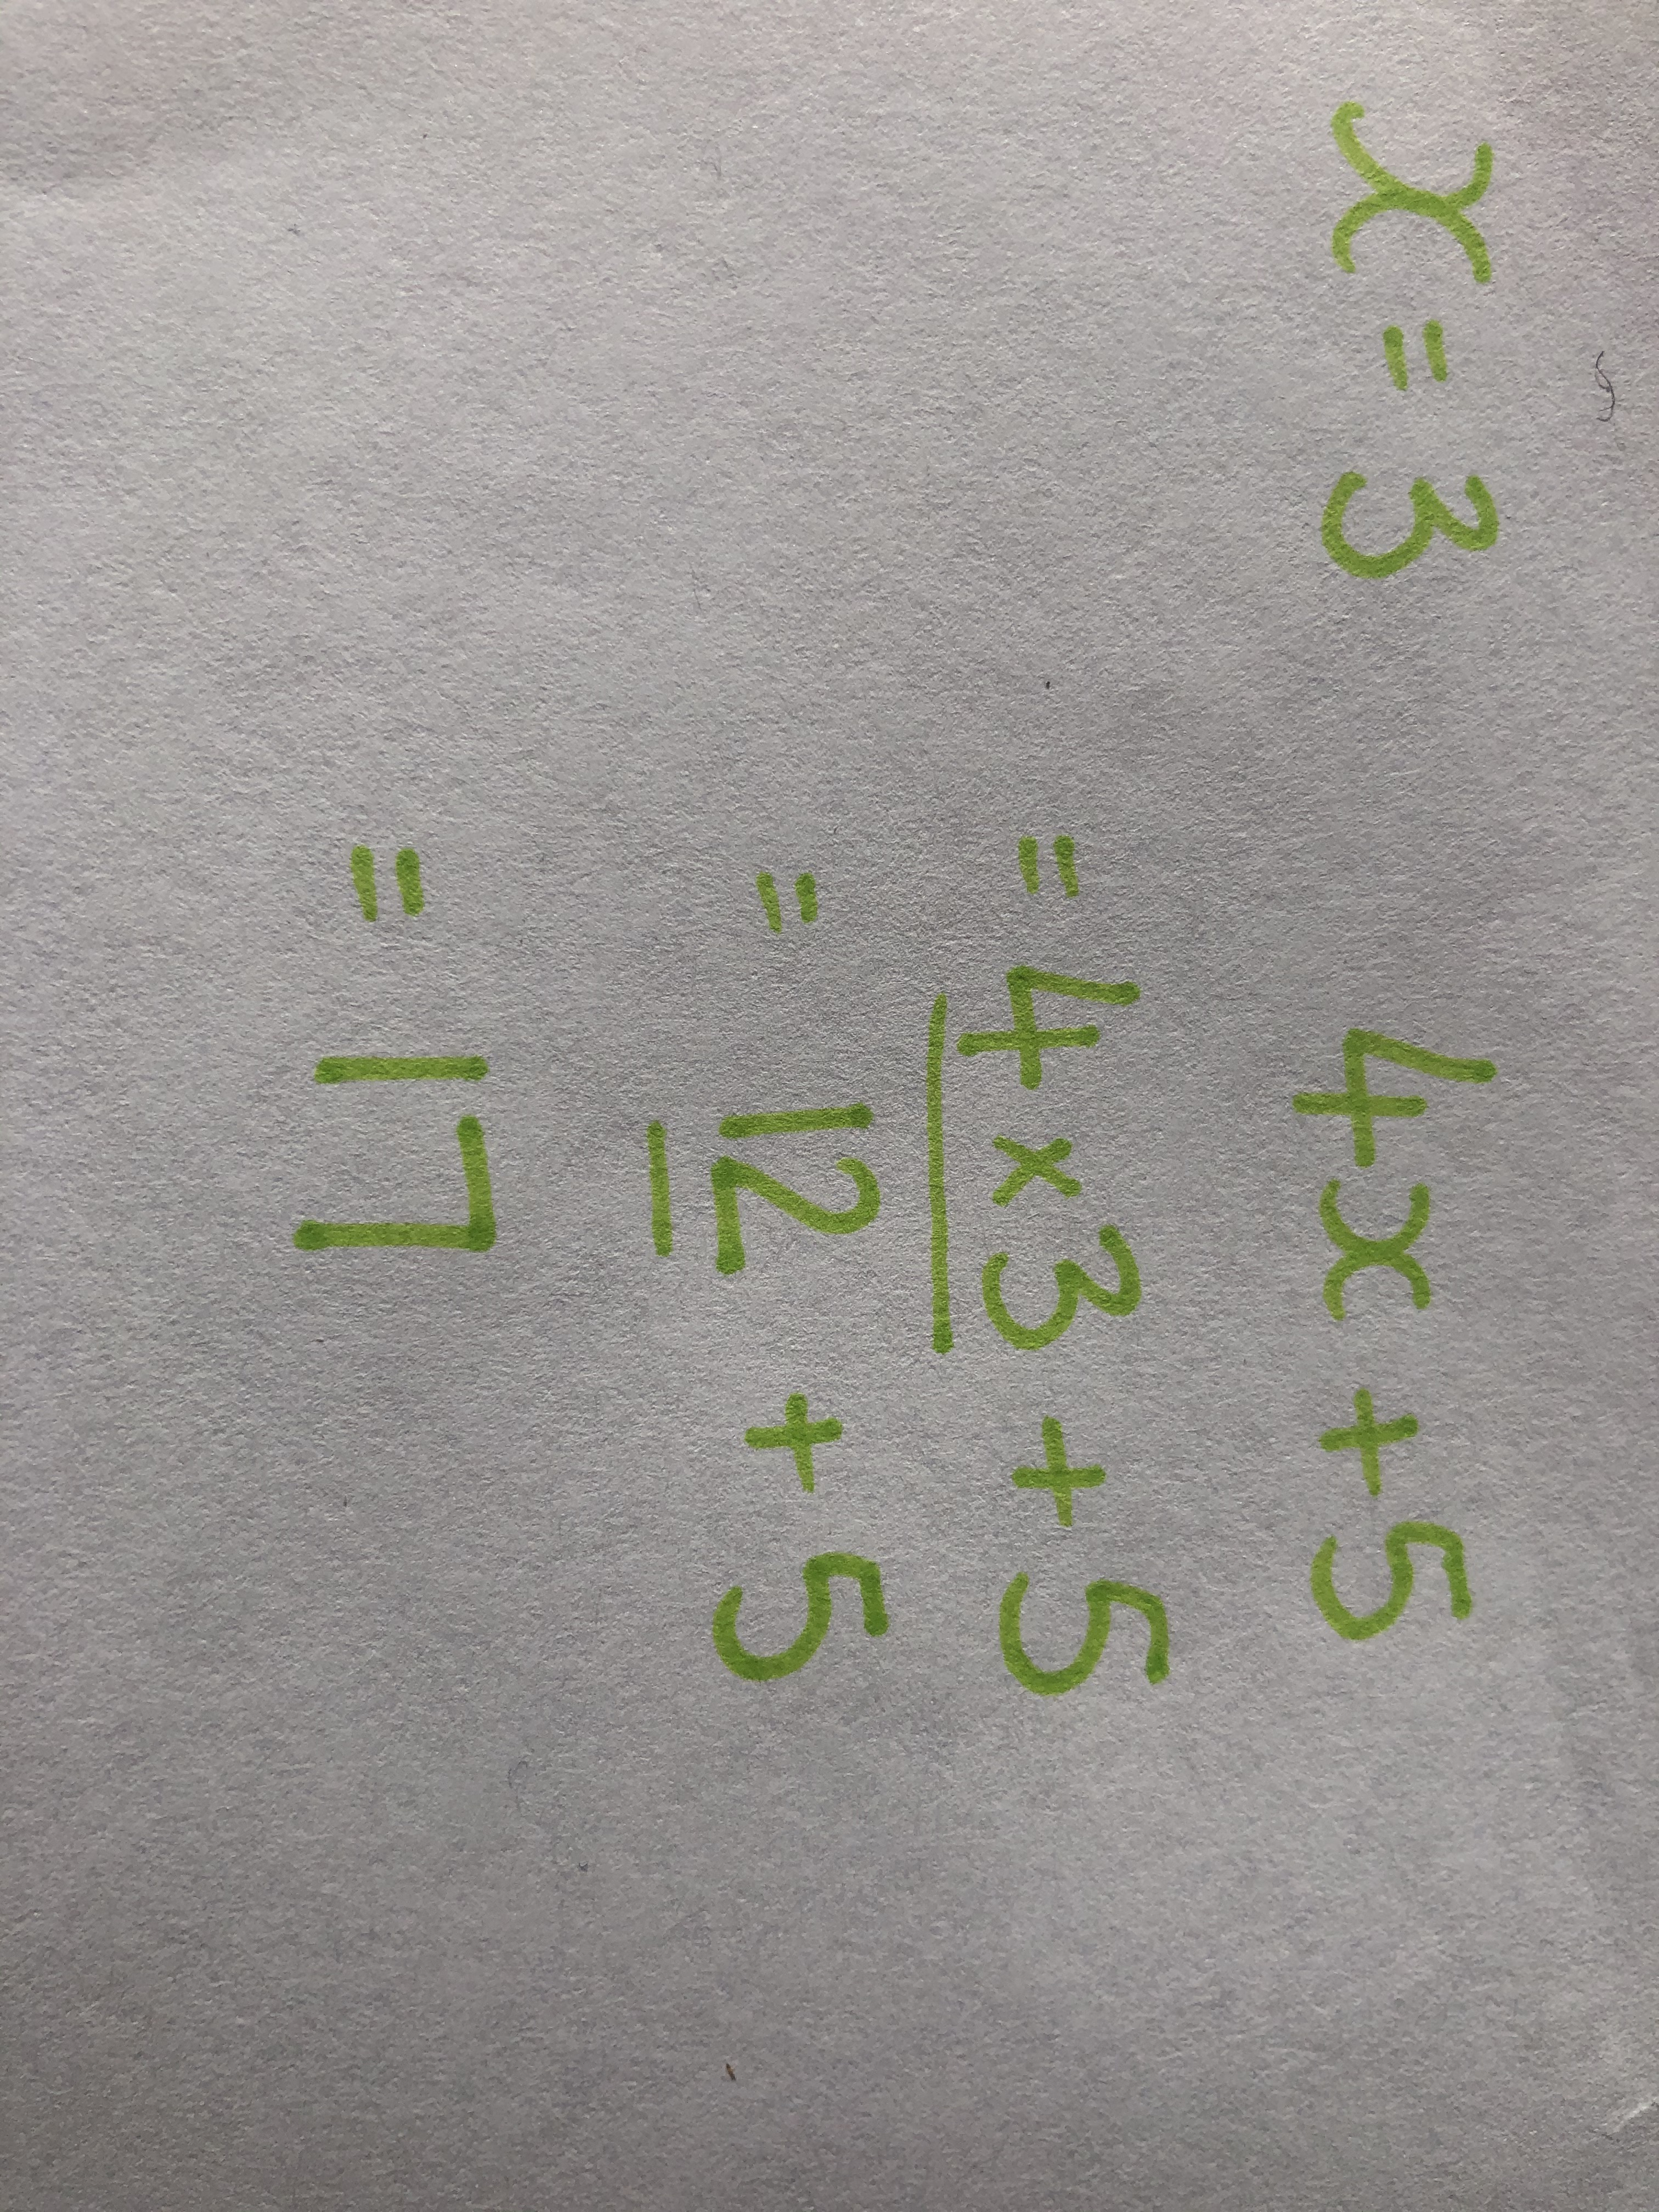 x = 3 4x + 5
= 4 × 3 + 5
= 12 + 5
= 17